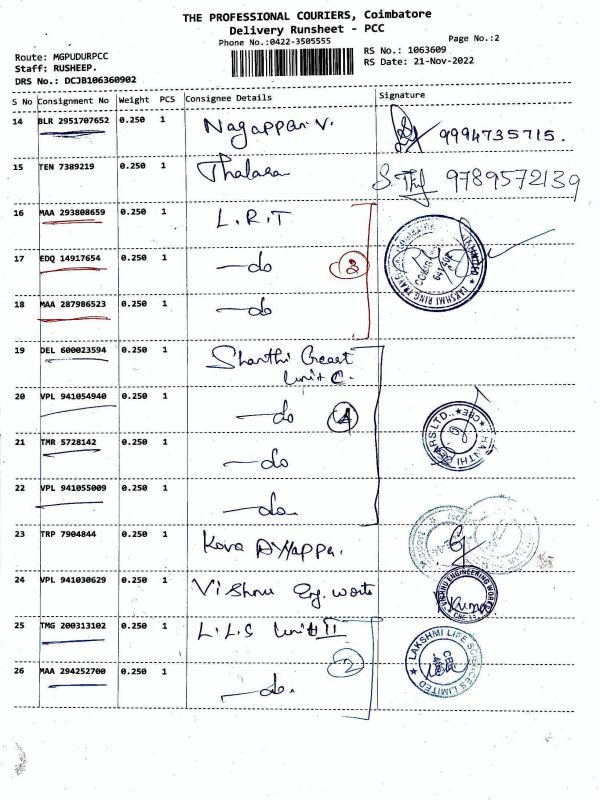 THE PROFESSIONAL COURIERS, Coimbatore
Delivery Runsheet - PCC
Phone No.:0422-3505555
Page No.:2
Route: MGPUDURPCC
Staff: RUSHEEP.
DRS No.: DCJB106360902
RS No.: 1063609
RS Date: 21-Nov-2022
S No Consignment No Weight PCS Consignee Details Signature
14 BLR 2951707652 0.250 1 Nagappan V. 9994735715.
15 TEN 7389219 0.250 1 S. 9789572139
16 MAA 293808659 0.250 1 L.R.T
17 EDQ 14917654 0.250 1 —do 3
18 MAA 287986523 0.250 1 —do
19 DEL 600023594 0.250 1 Shanthi Geart
Unit C.
20 VPL 941054940 0.250 1 —do 4
21 TMR 5728142 0.250 1 —do
22 VPL 941055009 0.250 1 —do.
23 TRP 7904844 0.250 1 Kova Ayyappa.
24 VPL 941030629 0.250 1 Vishnu Eng. works
VISHNU ENGINEERING WORKS
25 TMG 200313102 0.250 1 L.L.S Unit II
LAKSHMI LIFE SCIENCES LIMITED
26 MAA 294252700 0.250 1 —do. 2